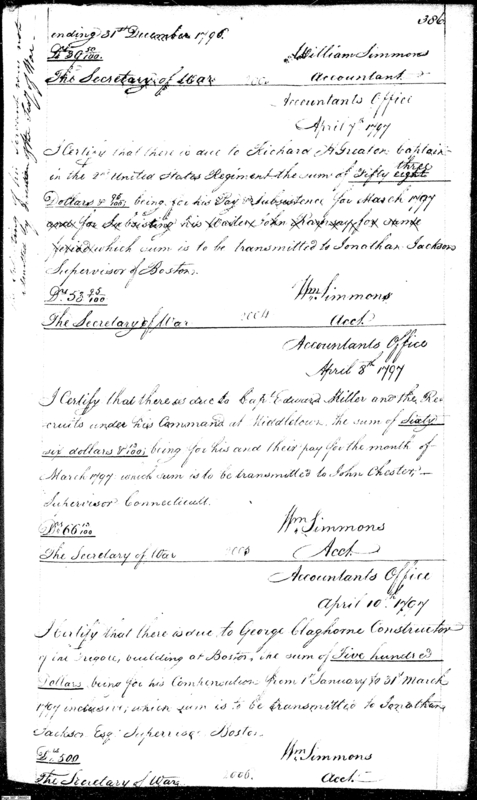 386
ending 31st December 1796.
Drs 39 50/100
William Simmons
The Secretary of War
Accountant
Accountants Office
April 7th 1797
I Certify that there is due to Richard H Greaton Captain
in the 2d United States Regiment the sum of Fifty eight three
Dollars & 95/100 being for his Pay & Subsistence for March 1797
and for Subsisting his Waiter John for same
period which sum is to be transmitted to Jonathan Jackson
Supervisor of Boston.
Drs 53 95/100
Wm. Simmons
The Secretary of War
2004
Acct.
Accountants Office
April 8th 1797
I Certify that there is due to Capt Edward Miller and the Re-
cruits under his Command at Middletown the sum of Sixty
six dollars & 10/100 being for his and their pay for the month of
March 1797 which sum is to be transmitted to John Chester,
Supervisor Connecticut.
Drs 66 10/100
Wm. Simmons
The Secretary of War
2005
Acct
Accountants Office
April 10th 1797
I Certify that there is due to George Claghorne Constructor
of the Frigate, building at Boston, the sum of Five hundred
Dollars being for his Compensation from 1st January to 31st March
1797 inclusive, which sum is to be transmitted to Jonathan
Jackson Esqr Supervisor Boston.
Drs 500
Wm. Simmons
The Secretary of War
2006.
Acct.